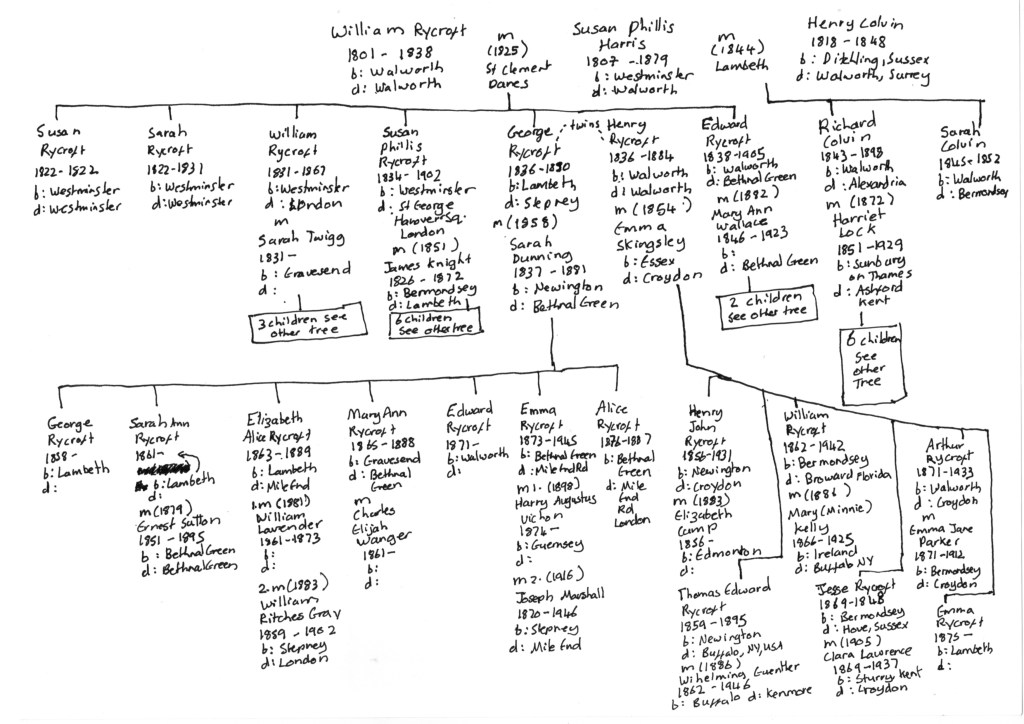 William Rycroft
1801 - 1838
b: Walworth
d: Walworth
m
(1825)
St Clement
Danes
Susan Phillis
Harris
1807 - 1879
b: Westminster
d: Walworth
m
(1844)
Lambeth
Henry Colvin
1818 - 1848
b: Ditchling, Sussex
d: Walworth, Surrey
Susan
Rycroft
1822 - 1822
b: Westminster
d: Westminster
Sarah
Rycroft
1822-1831
b: Westminster
d: Westminster
William
Rycroft
1831 - 1867
b: Westminster
d: London
m
Sarah Twigg
1831-
b: Gravesend
d:
3 children see
other tree
Susan
Phillis
Rycroft
1834 - 1902
b: Westminster
d: St George
Hanover Sq.
London
m (1851)
James Knight
1826 - 1872
b: Bermondsey
d: Lambeth
6 children
see other tree
twins
George
Rycroft
1836-1880
b: Lambeth
d: Stepney
m (1858)
Sarah
Dunning
1837 - 1881
b: Newington
d: Bethnal Green
Henry
Rycroft
1836 - 1884
b: Walworth
d: Walworth
m (1854)
Emma
Skingsley
b: Essex
d: Croydon
Edward
Rycroft
1838-1905
b: Walworth
d: Bethnal Green
m (1882)
Mary Ann
Wallace
1846 - 1923
b:
d: Bethnal Green
2 children
see other tree
Richard
Colvin
1843 - 1898
b: Walworth
d: Alexandria
m (1872)
Harriet
Lock
1851 - 1929
b: Sunbury
on Thames
d: Ashford
Kent
6 children
see
other
Tree
Sarah
Colvin
1845 - 1852
b: Walworth
d: Bermondsey
George
Rycroft
1858 -
b: Lambeth
d:
Sarah Ann
Rycroft
1861-
b: Lambeth
d:
m (1879)
Ernest Sutton
1851 - 1895
b: Bethnal Green
d: Bethnal Green
Elizabeth
Alice Rycroft
1863 - 1889
b: Lambeth
d: Mile End
1.m (1881)
William
Lavender
1861 - 1873
b:
d:
2.m (1883)
William
Ritches Gray
1859 - 1902
b: Stepney
d: London
Mary Ann
Rycroft
1865 - 1888
b: Gravesend
d: Bethnal
Green
m
Charles
Elijah
Wanger
1861 -
b:
d:
Edward
Rycroft
1871 -
b: Walworth
d:
Emma
Rycroft
1873 - 1945
b: Bethnal Green
d: Mile End Rd
m 1. (1898)
Harry Augustus
Vichon
1874 -
b: Guernsey
d:
m 2. (1916)
Joseph Marshall
1870 - 1946
b: Stepney
d: Mile End
Alice
Rycroft
1876-1887
b: Bethnal
Green
d: Mile
End
Rd
London
Henry
John
Rycroft
1856-1931
b: Newington
d: Croydon
m (1883)
Elizabeth
Camp
1856 -
b: Edmonton
d:
Thomas Edward
Rycroft
1859 - 1895
b: Newington
d: Buffalo, NY, USA
m (1886)
Wihelming Guentler
1862 - 1946
b: Buffalo d: Kenmore
William
Rycroft
1862 - 1942
b: Bermondsey
d: Broward Florida
m (1886)
Mary (Minnie)
Kelly
1866 - 1925
b: Ireland
d: Buffalo NY
Jesse Rycroft
1869 - 1848
b: Bermondsey
d: Hove, Sussex
m (1905)
Clara Lawrence
1869 - 1937
b: Sturry Kent
d: Croydon
Arthur
Rycroft
1871 - 1933
b: Walworth
d: Croydon
m
Emma Jane
Parker
1871 - 1912
b: Bermondsey
d: Croydon
Emma
Rycroft
1875 -
b: Lambeth
d: